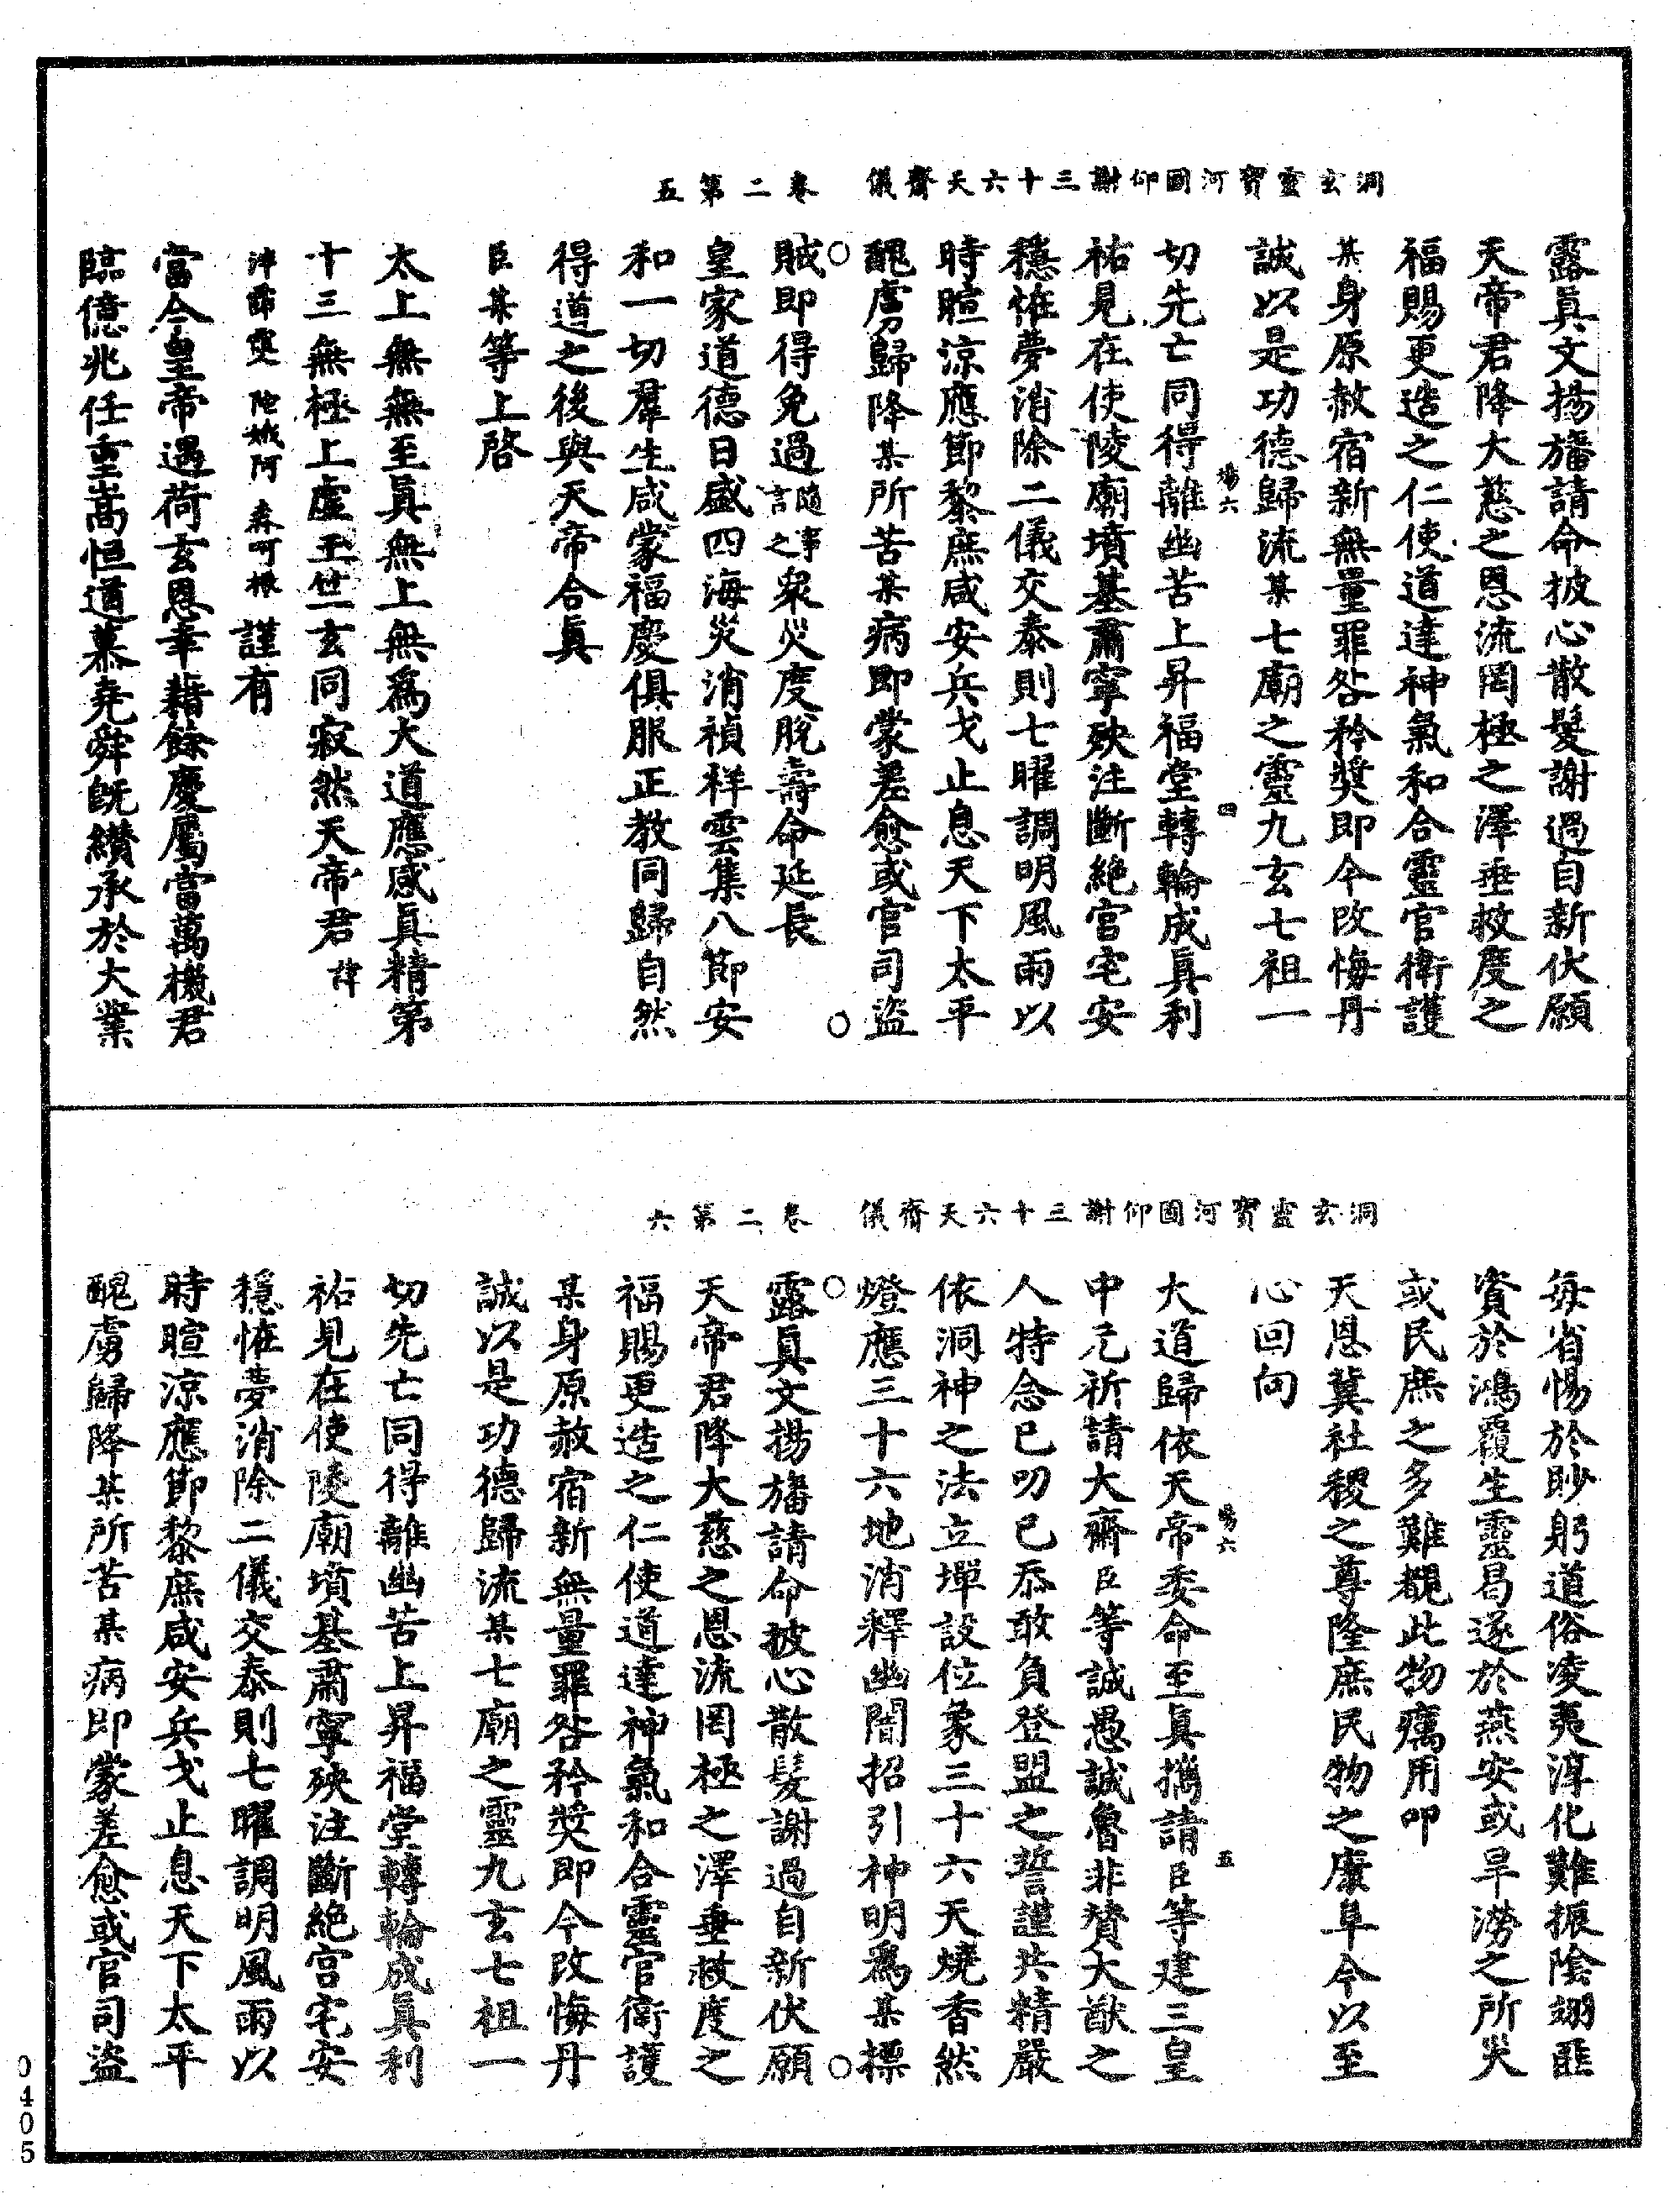 洞玄靈寶河圖仰謝三十六天齋儀　卷二第五
露眞文揚旛請命披心散髮謝過自新伏願
天帝君降大慈之恩流罔極之澤垂救度之
福賜更造之仁使道達神氣和合靈官衛護
某身原赦宿新無量罪咎矜獎即今改悔丹
誠以是功德歸流某七廟之靈九玄七祖一
切先亡同得離幽苦上昇福堂轉輪成眞利
祐見在使陵廟墳基肅寧殃注斷絕宮宅安
穩恠夢消除二儀交泰則七曜調明風雨以
時暄涼應節黎庶咸安兵戈止息天下太平
醜虜歸降某所苦某病即蒙差愈或官司盜
賊即得免過隨事言之衆災度脫壽命延長
皇家道德日盛四海災消禎祥雲集八節安
和一切羣生咸蒙福慶俱服正教同歸自然
得道之後與天帝合眞
臣某等上啓
太上無無至眞無上無爲大道應感眞精第
十三無極上虛玉笁玄同寂然天帝君諱
謹有
當今皇帝遇荷玄恩幸藉餘慶屬當萬機君
臨億兆任重嵩恒道慕堯舜旣纉承於大業
洞玄靈寶河圖仰謝三十六天齋儀　卷二第六
每省惕於眇躬道俗凌夷淳化難振陰翊匪
資於鴻覆生靈曷遂於燕安或旱澇之所災
或民庶之多難覩此物癘用叩
天恩冀社稷之尊隆庶民物之康阜今以至
心回向
大道歸依天帝委命至眞攜請臣等建三皇
中元祈請大齋臣等誠愚誠魯非贊大猷之
人特念已叨已忝敢負登盟之誓謹共精嚴
依洞神之法立墠設位象三十六天燒香然
燈應三十六地消釋幽闇招引神明爲某摽
露眞文揚旛請命披心散髮謝過自新伏願
天帝君降大慈之恩流罔極之澤垂救度之
福賜更造之仁使道達神氣和合靈官衛護
某身原赦宿新無量罪咎矜獎即今改悔丹
誠以是功德歸流某七廟之靈九玄七祖一
切先亡同得離幽苦上昇福堂轉輪成眞利
祐見在使陵廟墳基肅寧殃注斷絕宮宅安
穩恠夢消除二儀交泰則七曜調明風雨以
時暄涼應節黎庶咸安兵戈止息天下太平
醜虜歸降某所苦某病即蒙差愈或官司盜
0405